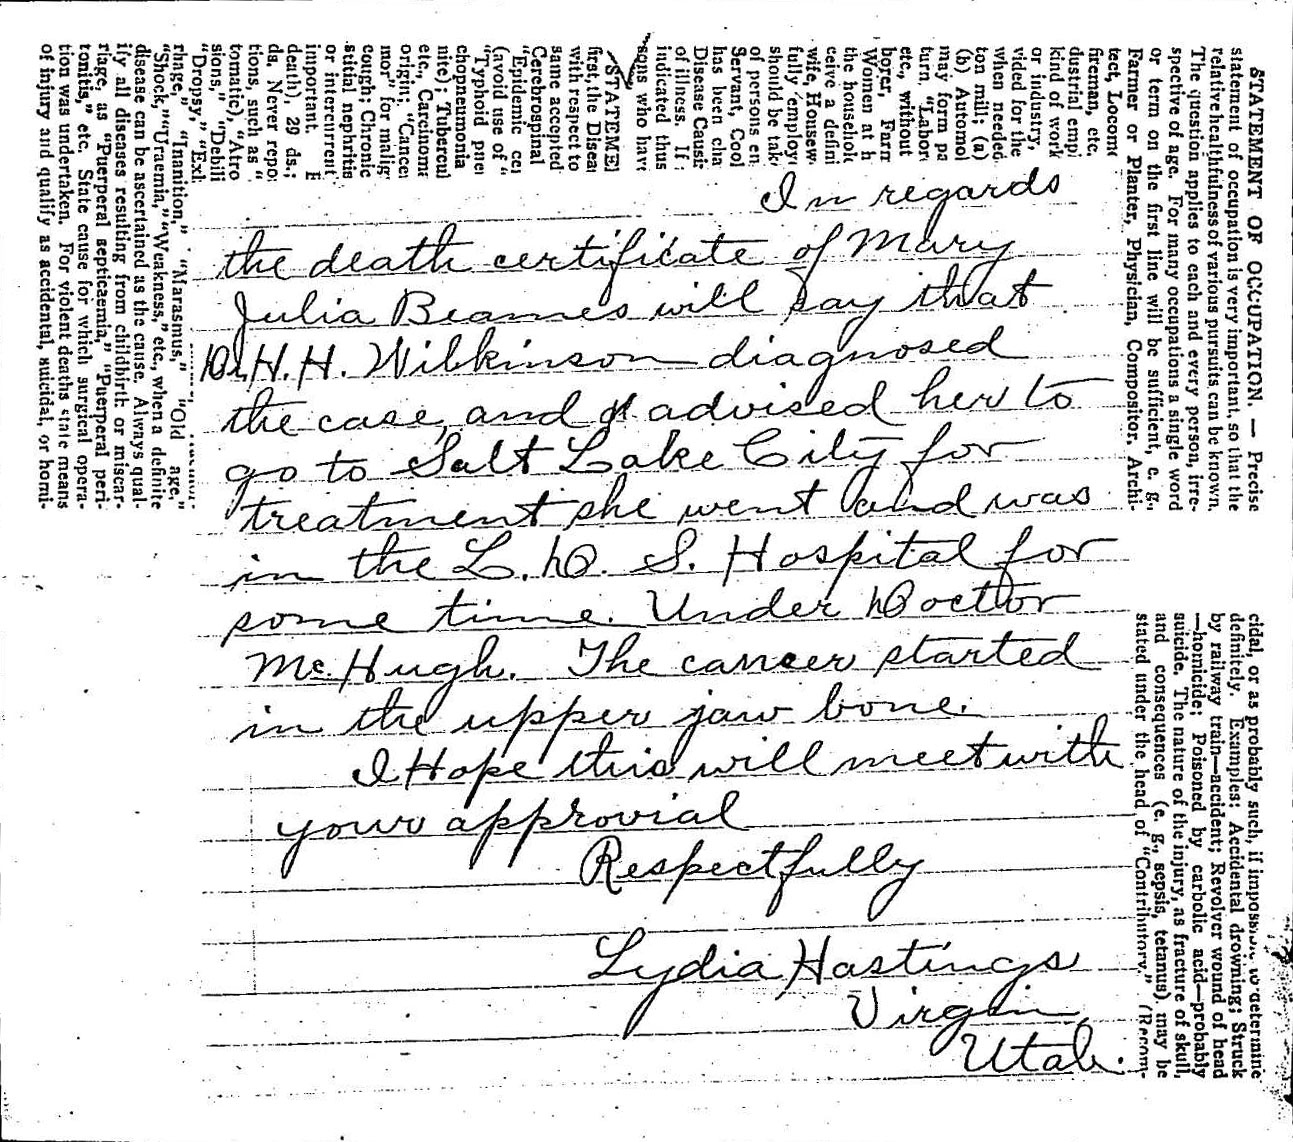 In regards
the death certificate of Mary
Julia Beames will say that
Dr. H. H. Wilkinson diagnosed
the case, and advised her to
go to Salt Lake City for
treatment she went and was
in the L. D. S. Hospital for
some time. Under Doctor
Mc. Hugh. The cancer started
in the upper jaw bone.
I Hope this will meet with
your approvial
Respectfully
Lydia Hastings
Virgin
Utah.
STATEMENT OF OCCUPATION. — Precise
statement of occupation is very important, so that the
relative healthfulness of various pursuits can be known.
The question applies to each and every person, irre-
spective of age. For many occupations a single word
or term on the first line will be sufficient, e. g.,
Farmer or Planter, Physician, Compositor, Archi-
tect, Locomo
fireman, etc.
dustrial empl
kind of work
or industry,
vided for the
when needed.
ton mill; (a)
(b) Automol
may form pa
turn "Labor
etc., without
borer, Farm
Women at h
the househol
ceive a defini
wife, Housew
fully employ
should be tak
of persons en
Servant, Cool
has been cha
Disease Causi
of illness. If
indicated thus
sons who hav
STATEMEN
first, the Disea
with respect to
same accepted
Cerebrospinal
"Epidemic cer
(avoid use of "
"Typhoid pneu
chopneumonia
nite); Tubercul
etc., Carcinoma
origin; "Cancer
mor" for malig
cough; Chronic
stitial nephritis
or intercurrent
important. E
death), 29 ds.;
ds. Never repo
tions, such as "
tomatic), "Atro
sions," "Debili
"Dropsy," "Exh
rhage," "Inanition," "Marasmus," "Old age,"
"Shock," "Uraemia," "Weakness," etc., when a definite
disease can be ascertained as the cause. Always qual-
ify all diseases resulting from childbirth or miscar-
riage, as "Puerperal septicaemia," "Puerperal peri-
tonitis," etc. State cause for which surgical opera-
tion was undertaken. For violent deaths state means
of injury and qualify as accidental, suicidal, or homi-
cidal, or as probably such, if impossible to determine
definitely. Examples: Accidental drowning; Struck
by railway train—accident; Revolver wound of head
—homicide; Poisoned by carbolic acid—probably
suicide. The nature of the injury, as fracture of skull,
and consequences (e. g., sepsis, tetanus) may be
stated under the head of "Contributory." (Recom-